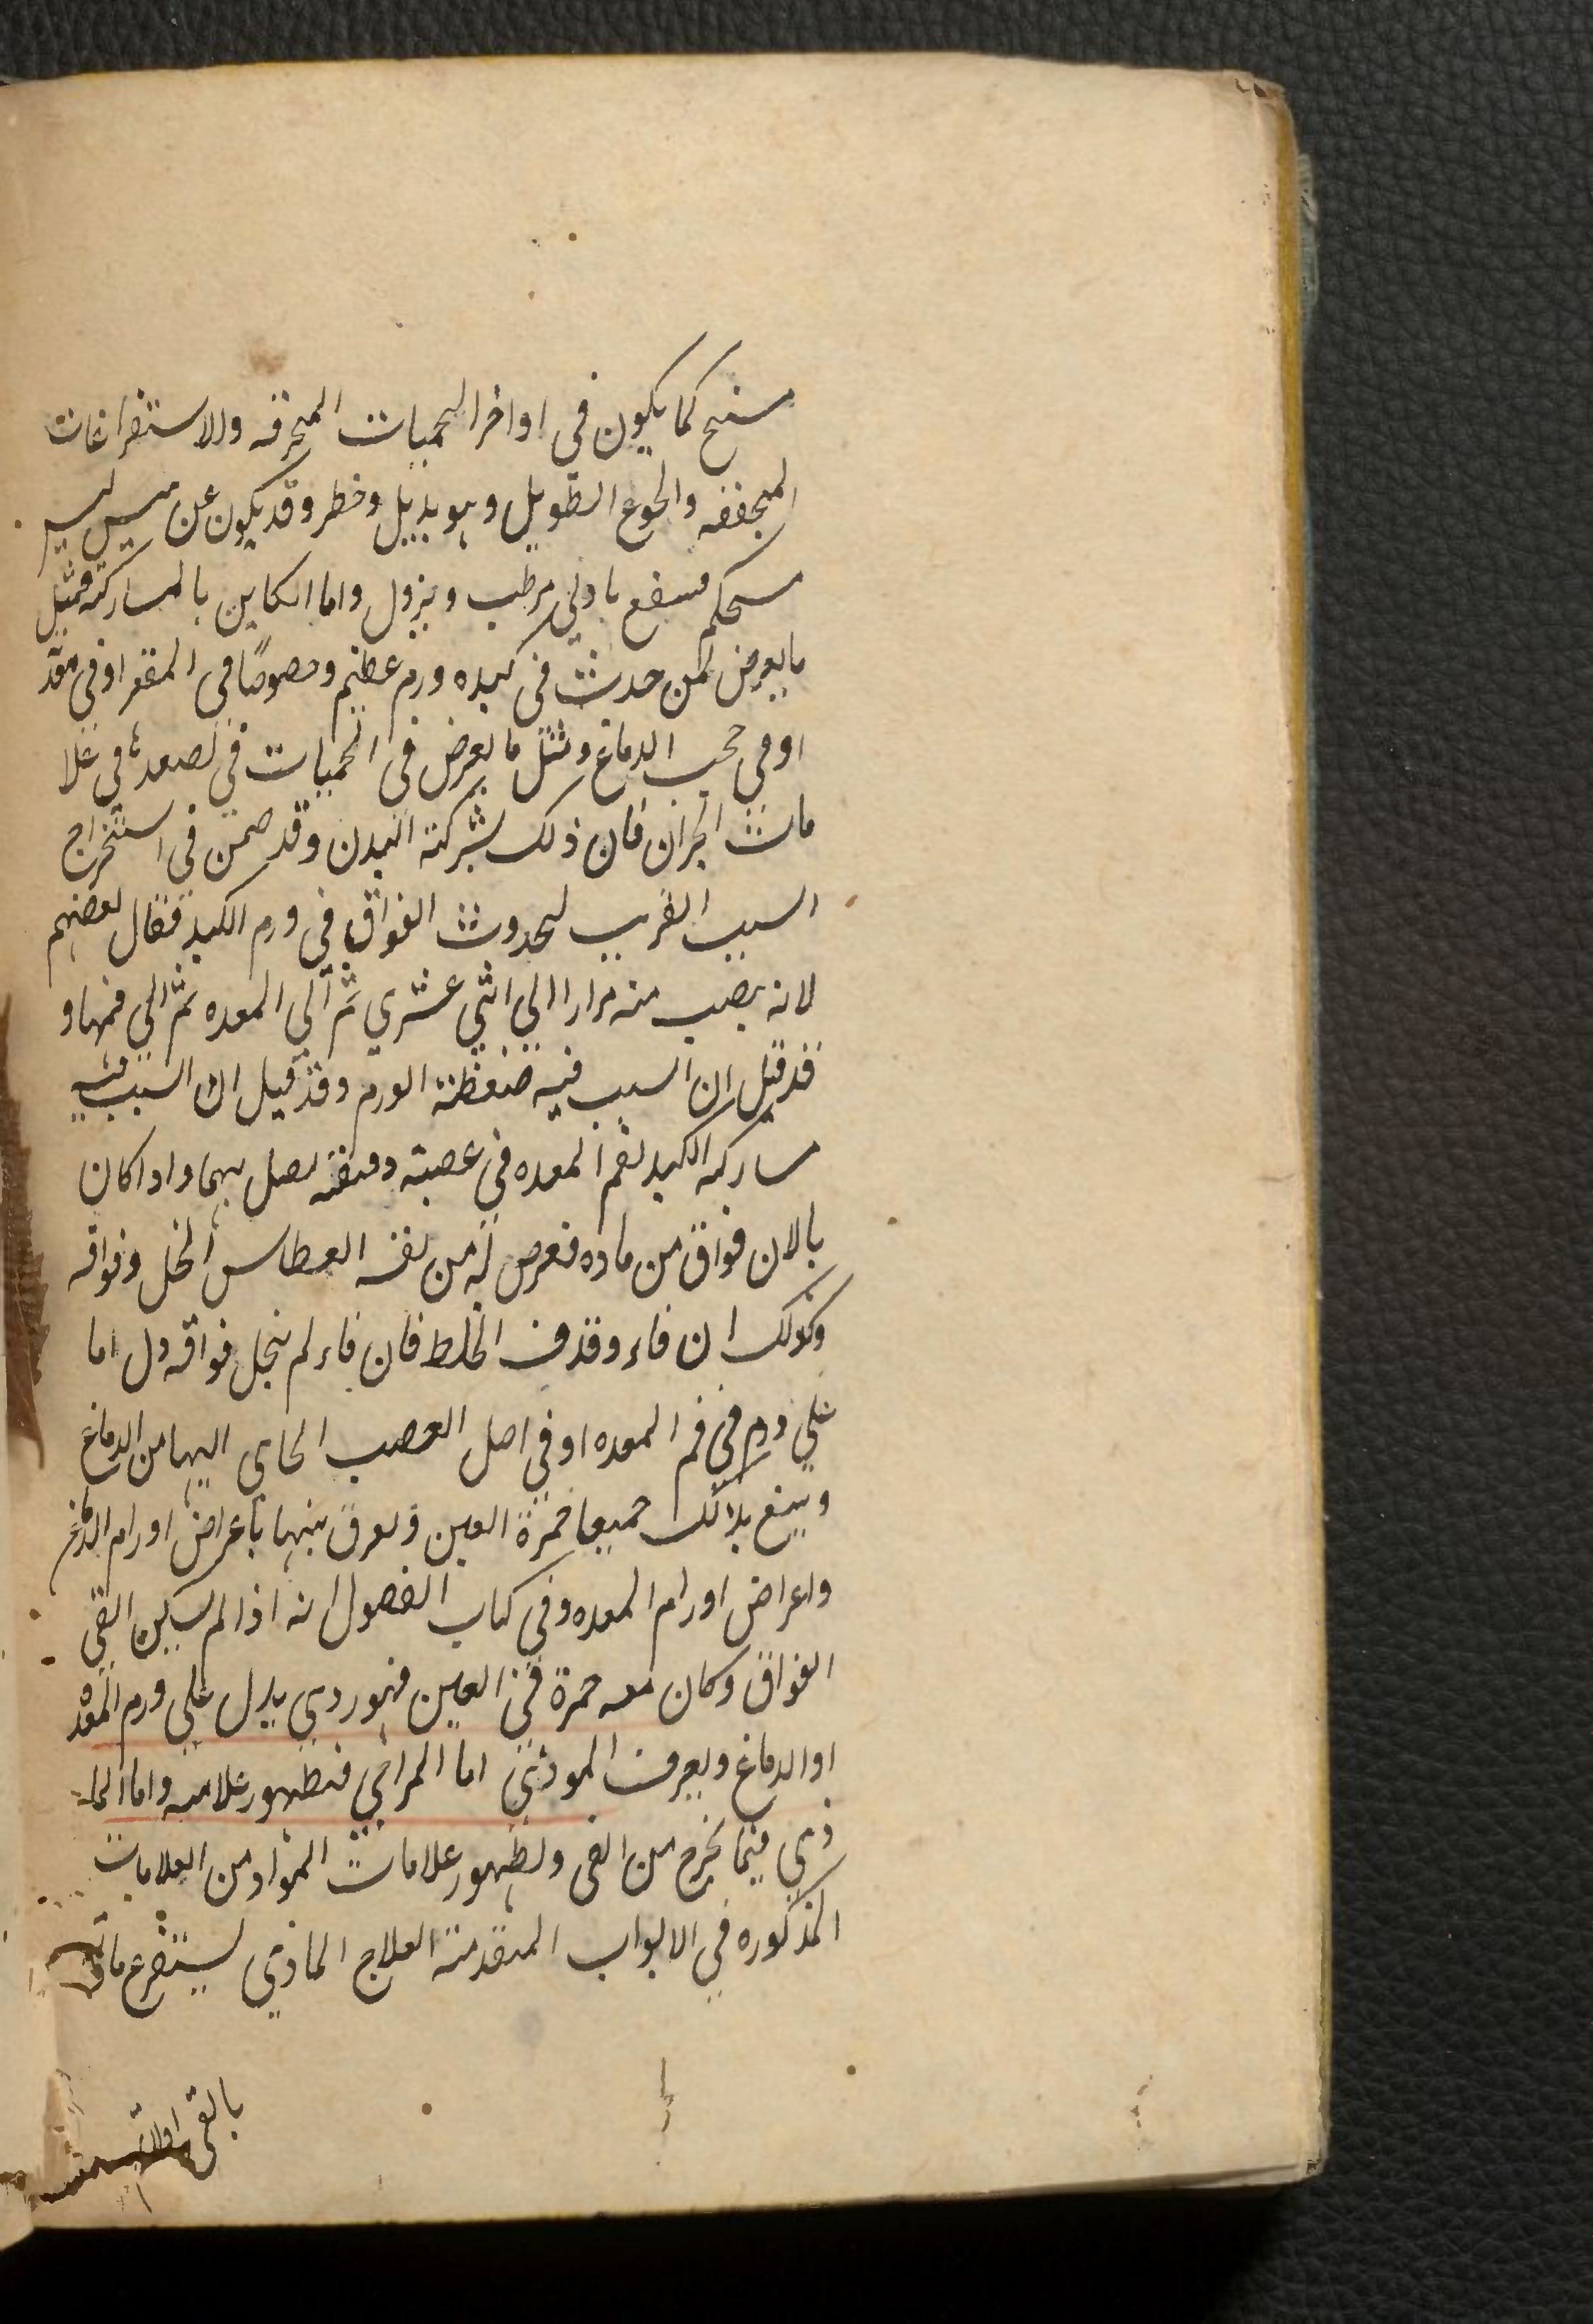 مشنج كما يكون في اواخر الحميات المحرقه والاستفراغات
المجففه والجوع الطويل وهو بديل وخطر وقد يكون عن يبس ليس
مستحكم فينفع بادني مرطب ويزول واما الكاين بالمشاركة فمثل
ما يعرض لمن حدث في كبده ورم عظيم وخصوصًا في المقعر او في معد
او في حجب الدماغ ومثل ما يعرض في الحميات في تصعدها في علا
مات البحران فان ذلك بشركة البدن وقد خمن في استخراج
السبب القريب لحدوث الفواق في ورم الكبد فقال بعضهم
لانه يصب منه مرارا الي اثني عشري ثم الي المعده ثم الي فمها و
قد قيل ان السبب فيه ضغطة الورم وقد قيل ان السبب فيه
مشاركه الكبد لفم المعده في عصبة دقيقة تصل بهما واذا كان
بالانسان فواق من ماده فعرض له من نفسه العطاس انحل فواقه
وكذلك ان قاء وقذف الخلط فان قاء ولم ينحل فواقه دل اما
علي ورم في فم المعده او في اصل العصب الجاي اليها من الدماغ
ويتبع ذلك جميعا حمرة العين ويفرق بينها باعراض اورام الدماغ
واعراض اورام المعده وفي كتاب الفصول انه اذا لم يسكن القي
الفواق وكان معه حمرة في العين فهو ردي يدل علي ورم المعده
او الدماغ ويعرف الموذي اما المراجي فبظهور علامته واما الما
ذي فيما يخرج من القي ولظهور علامات المواد من العلامات
المذكوره في الابواب المتقدمة العلاج الماذي يستفرغ مادته
بالقي اولا